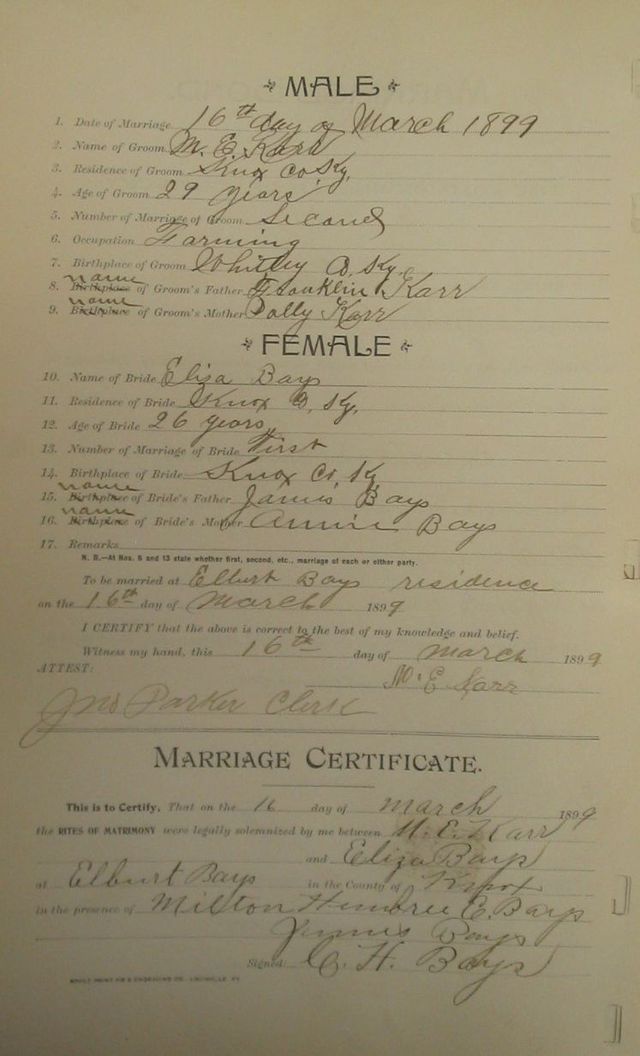 MALE
1. Date of Marriage 16th day of March 1899
2. Name of Groom M. E. Karr
3. Residence of Groom Knox Co, Ky.
4. Age of Groom 29 years
5. Number of Marriage of Groom Second
6. Occupation Farming
7. Birthplace of Groom Whitley Co, Ky.
name
8. Birthplace of Groom's Father Franklin Karr
name
9. Birthplace of Groom's Mother Polly Karr
FEMALE
10. Name of Bride Eliza Bays
11. Residence of Bride Knox Co, Ky.
12. Age of Bride 26 years
13. Number of Marriage of Bride First
14. Birthplace of Bride Knox Co, Ky
name
15. Birthplace of Bride's Father James Bays
name
16. Birthplace of Bride's Mother Annie Bays
17. Remarks
N. B.—At Nos. 5 and 13 state whether first, second, etc., marriage of each or either party.
To be married at Elburt Bays residence
on the 16th day of March 1899
I CERTIFY that the above is correct to the best of my knowledge and belief.
Witness my hand, this 16th day of March 1899
ATTEST: M. E. Karr
Jno Parker Clerk
MARRIAGE CERTIFICATE.
This is to Certify, That on the 16 day of March 1899
the RITES OF MATRIMONY were legally solemnized by me between M. E. Karr
and Eliza Bays
at Elburt Bays in the County of Knox
in the presence of Milton E. Bays
James Bays
Signed C. H. Bays